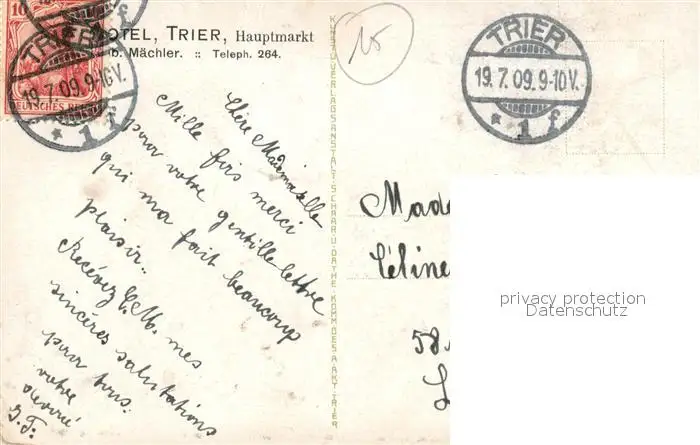 10
DEUTSCHES REICH
TRIER
19.7.09.9-10V.
* 1 f
OTEL, TRIER, Hauptmarkt
b. Mächler. :: Teleph. 264.
15
TRIER
19.7.09.9-10V.
* 1 f
Chère Mademoiselle
Mille fois merci
pour votre gentille lettre
qui ma fait beaucoup
plaisir..
Recévez C.M. mes
sincéres salutations
pour tous.
votre
dévoué
J.F.
KUNSTVERLAGSANSTALT SCHAAR U. DATHE KOMM. GES. A. AKT. TRIER
Made
Céline
58
privacy protection
Datenschutz